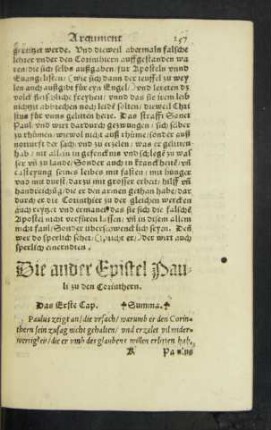 Argument 157
straffet werde. Vnd dieweil abermaln falsche
lehrer vnder den Corinthern auffgestanden wa
ren/die sich selbs außgaben/fur Aposteln vnnd
Euangelisten/(wie sich dann der teuffel zu wey
len auch außgibt fur eyn Engel) vnd lereten dz
volck fleischlich freyheit/ vnnd das sie inn dem
nichts abtriben noch leide solten/ dieweil Chri
stus für vnns gelitten hette. Das strafft Sanct
Paul/ vnd wirt dardurch gezwungen/ sich selber
zu rhümen/ wiewol nicht auß rhüme/ sonder auß
notturfft der sach/ vnd zu erzelen/ was er gelitten
hab/ nit allein in gefencknus vnd schlege zu was
ser vñ zu lande/Sonder auch in kranckheit/ vñ
casteyung seines leibes mit fasten/ mit hunger
vnd mit durst/dazu mit grosser erbeit/ hilff vñ
handreichug/ die er den armen gethan habe/ dar
durch er die Corinther zu der gleichen wercken
auch reytzet vnd ermanet/das sie sich die falsche
Apostel nicht verfüren lassen/ vñ in disem allem
nicht faul/ Sonder überschwencklich seyen. Den
wer do sperlich sehet/(spricht er) der wirt auch
sperlich einerndten.
Die ander Epistel Pau-
li zu den Corinthern.
Das Erste Cap. Summa.
Paulus zeigt an/die vrsach/ warumb er den Corin-
thern sein zusag nicht gehalten/ vnd erzelet vil wider-
wertigkeit/die er vmb der glaubens willen erlitten hab,
A Paulus